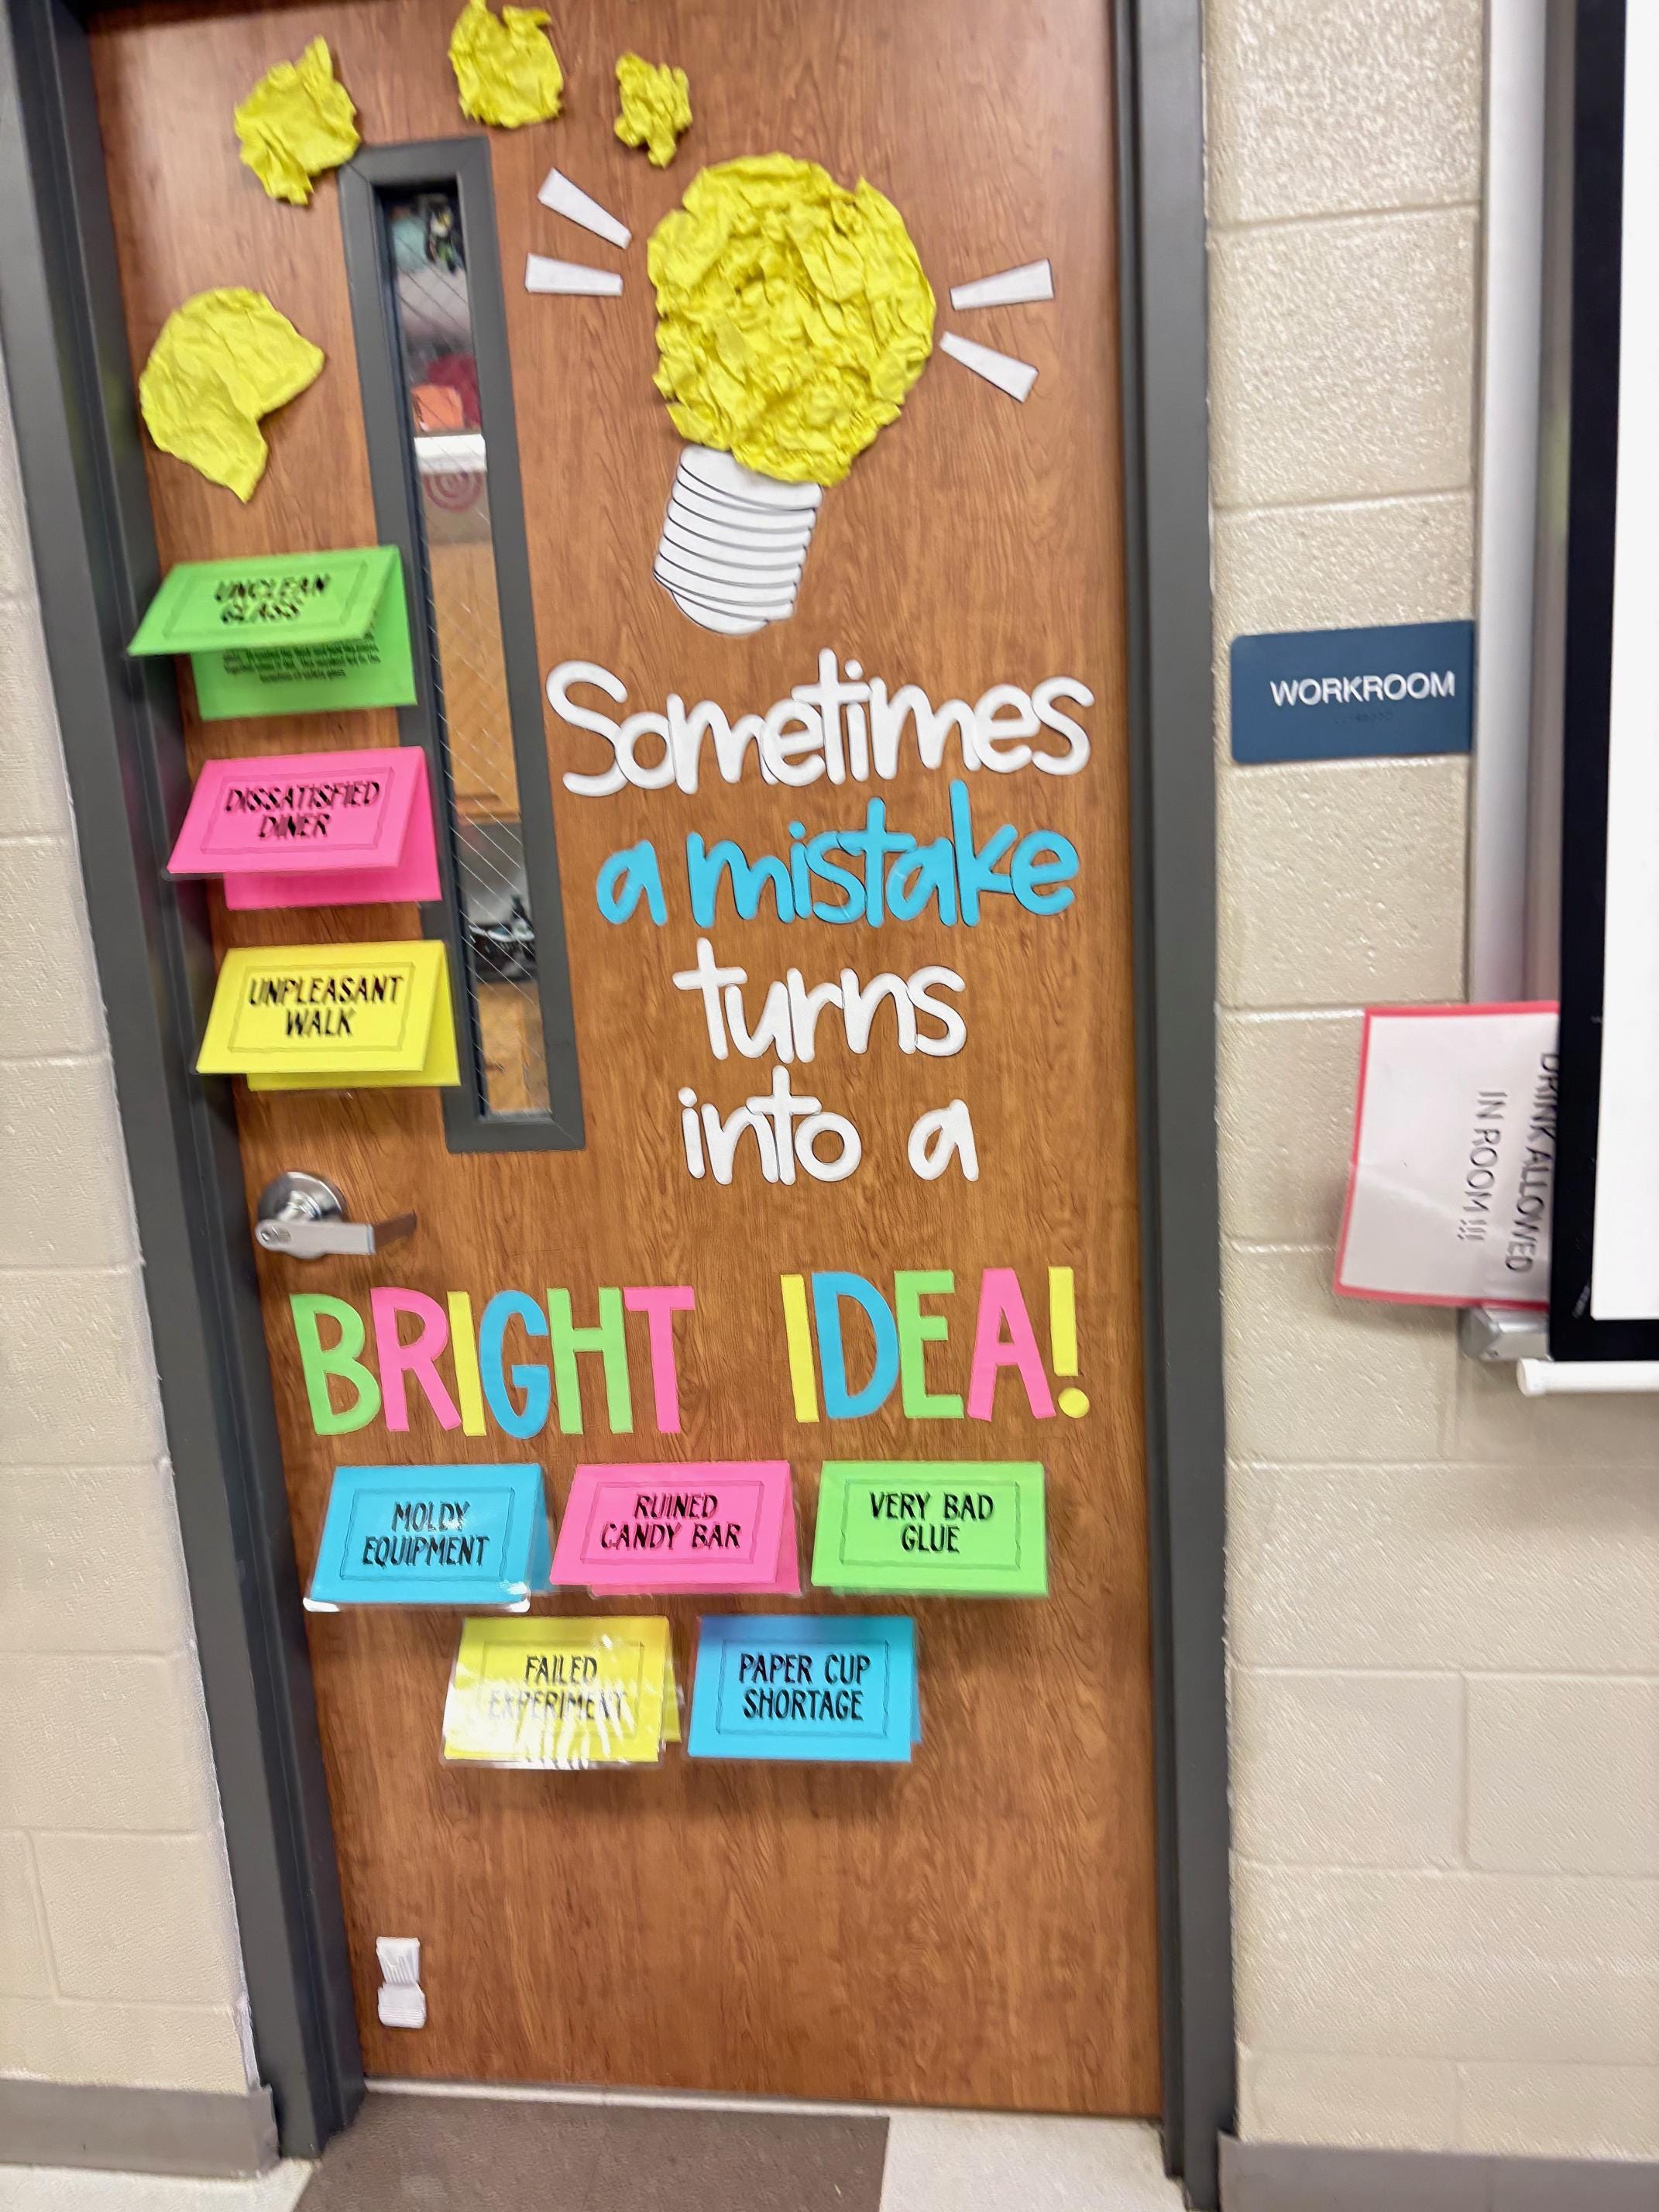 UNCLEAN
GLASS
DISSATISFIED
DINER
UNPLEASANT
WALK
Sometimes
a mistake
turns
into a
BRIGHT IDEA!
MOLDY
EQUIPMENT
RUINED
CANDY BAR
VERY BAD
GLUE
FAILED
EXPERIMENT
PAPER CUP
SHORTAGE
WORKROOM
DRINK ALLOWED
IN ROOM!!!